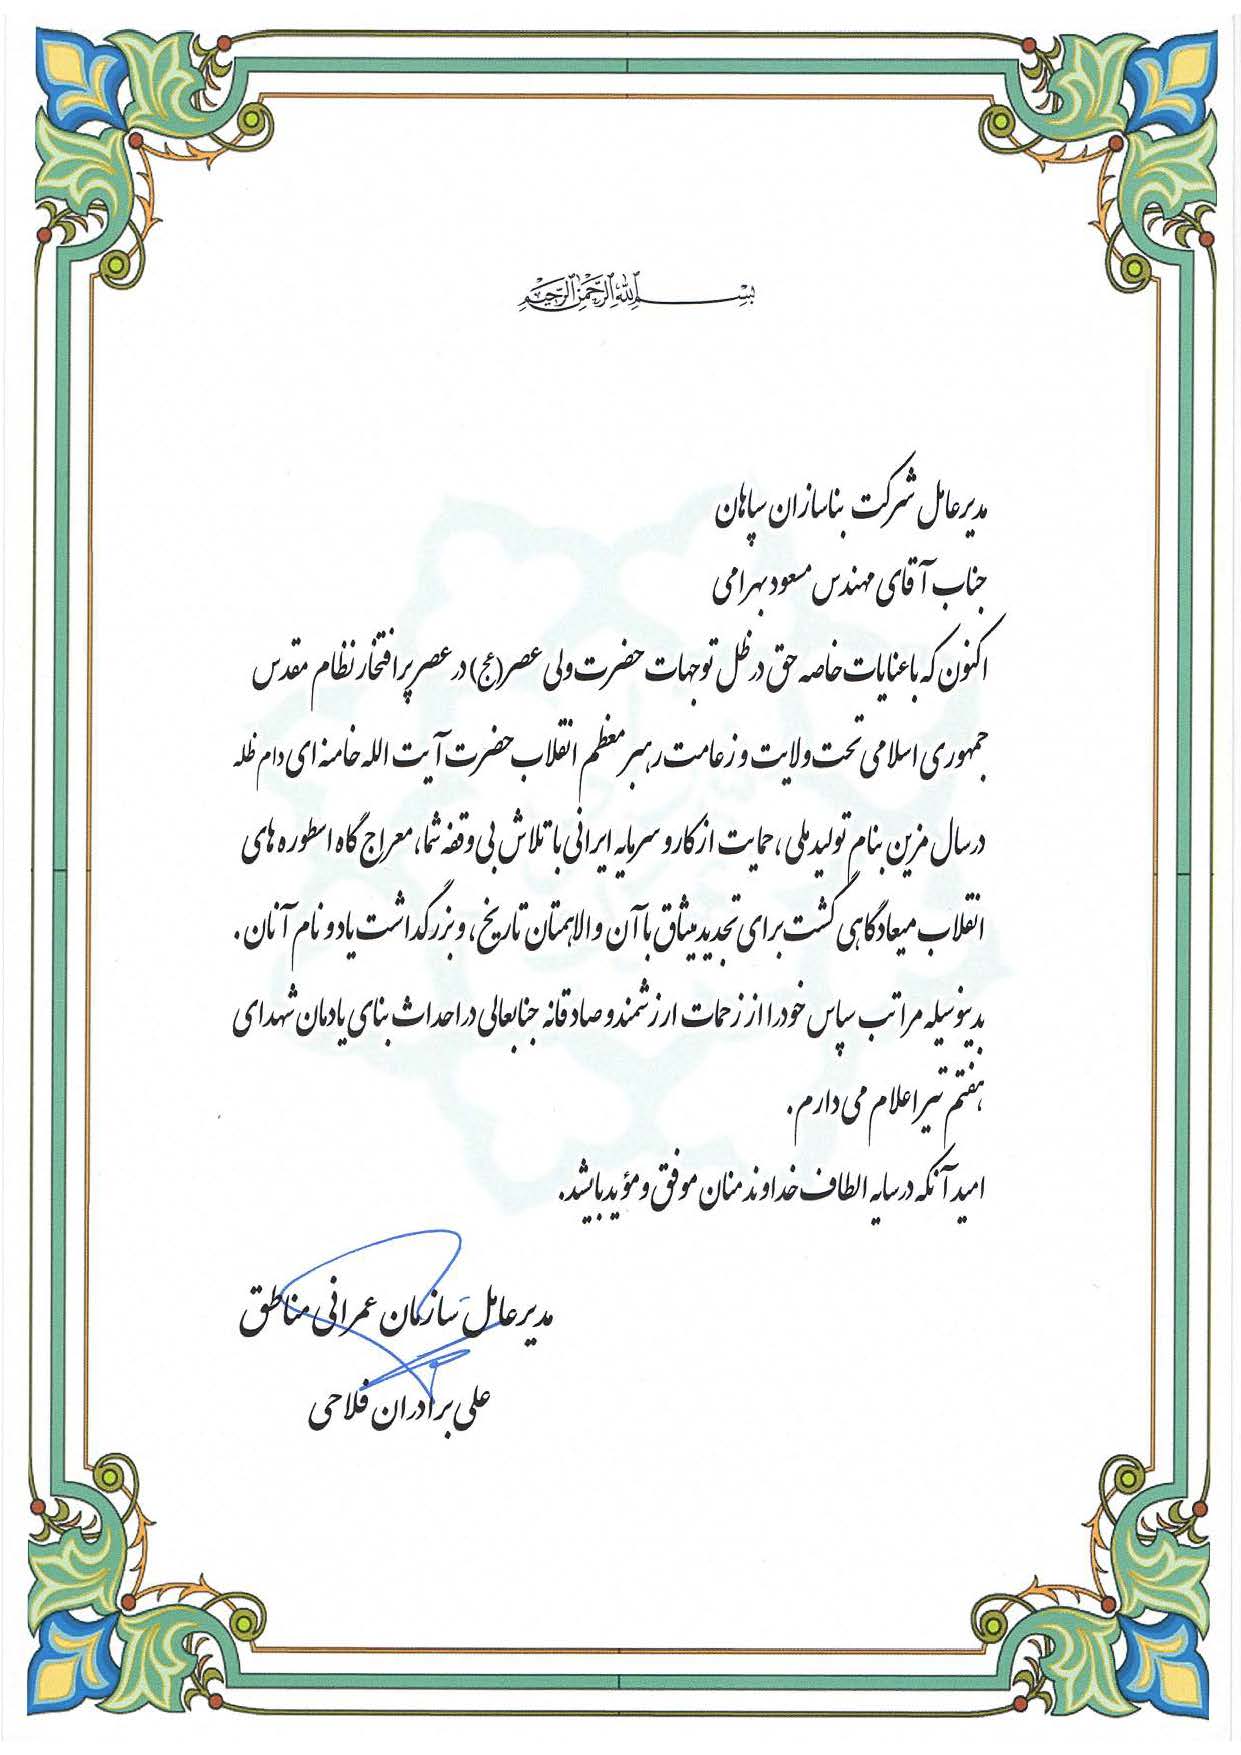 بسم الله الرحمن الرحیم
مدیرعامل شرکت بناسازان سپاهان
جناب آقای مهندس مسعود بهرامی
اکنون که با عنایات خاصه حق در ظل توجهات حضرت ولی عصر(عج) در عصر پر افتخار نظام مقدس
جمهوری اسلامی تحت ولایت و زعامت رهبر معظم انقلاب حضرت آیت الله خامنه ای دام ظله
در سال مزین بنام تولید ملی، حمایت از کار و سرمایه ایرانی با تلاش بی وقفه شما، معراج گاه اسطوره های
انقلاب میعادگاهی گشت برای تجدید میثاق با آن والاهمتان تاریخ، و بزرگداشت یاد و نام آنان.
بدینوسیله مراتب سپاس خود را از زحمات ارزشمند و صادقانه جنابعالی در احداث بنای یادمان شهدای
هفتم تیر اعلام می دارم.
امید آنکه در سایه الطاف خداوند منان موفق و مؤید باشید.
مدیرعامل سازمان عمرانی مناطق
علی برادران فلاحی